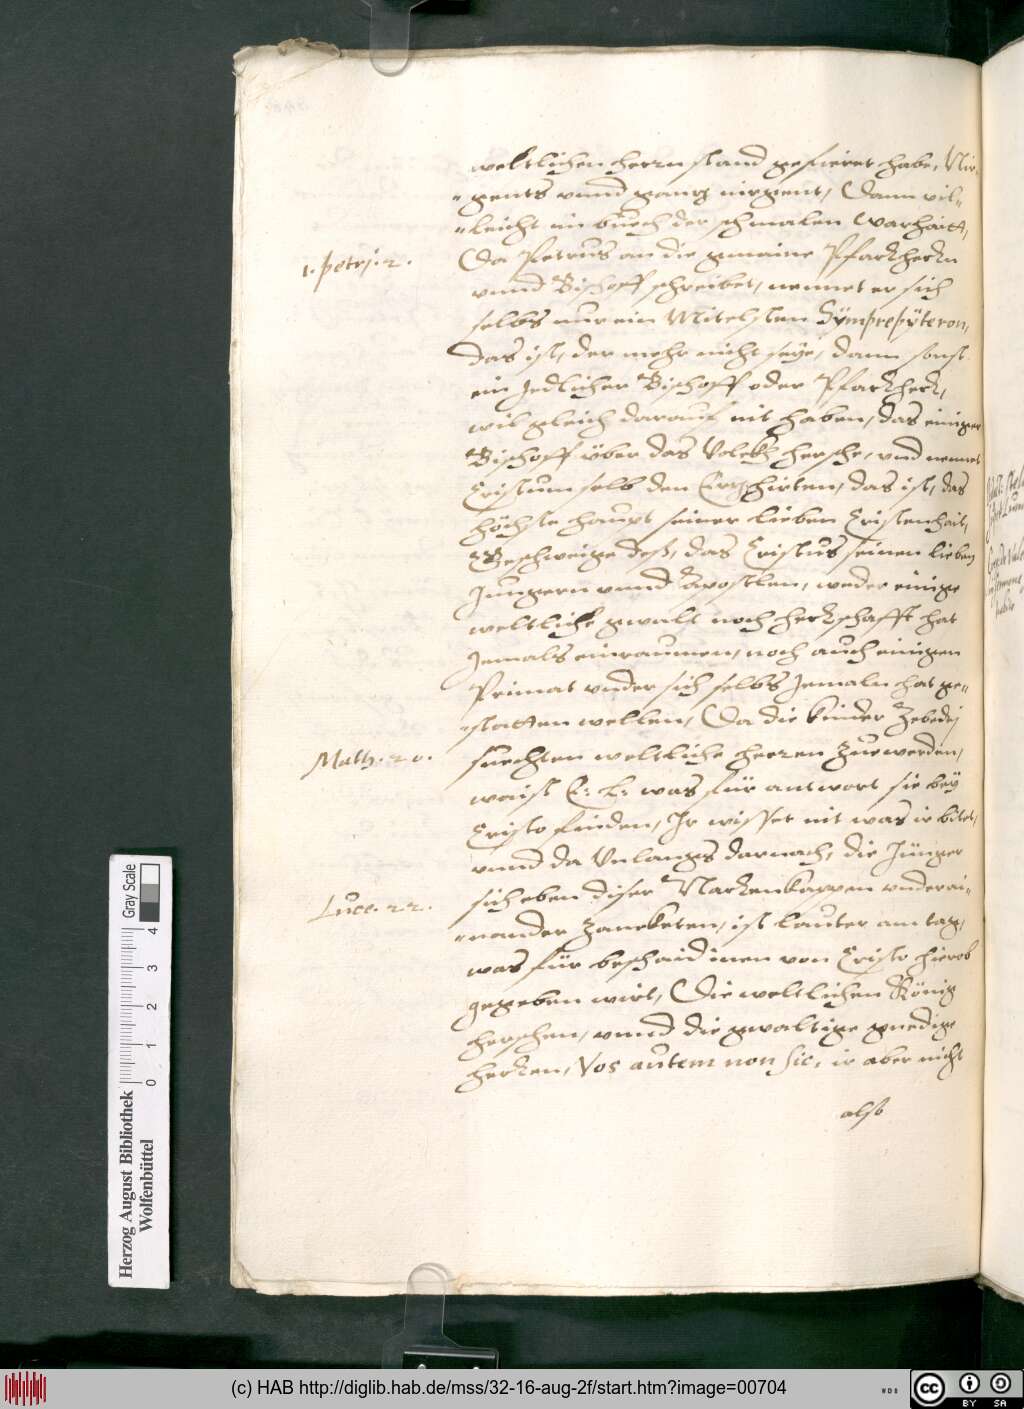 weltlichen herrn stand gefieret habe, Nir-
"gents vnnd gantz nirgent, Dann vil-
"leicht im buech der schmalen warhaitt,
1. petrj. 2.
Da Petrus an die gmaine Pfarrherrn
vnnd Bischoff schreibet, nennet er sich
selbs nur ein Mitelsten Sÿmprepÿteron,
das ist, der mehr nicht seÿe, dann sonst
ein Jedlicher Bischoff oder Pfarrherr,
wil gleich darauf nit haben, das einiger
Bischoff über das Volckh hersche, vnd nennet
Cristum selb den Ertzhirten, das ist, das
höchste haupt seiner lieben Cristenhait,
Geschweige deß, das Cristus seinen lieben
Jungern vnnd Apostlen, weder einige
weltliche gwalt noch herrschafft hat
Jemals einraumen, noch auch einigen
Primat vnder sich selbs Jemaln hat ge-
"statten wellen, Da die kinder Zebedej
Math. 20.
suechten weltliche herren zue werden,
waist E: L: was für antwort sie beÿ
Cristo finden, Ir wisset nit was ir bitet,
vnnd da Vnlangs darnach, die Jünger
Luce. 22.
sich eben diser Narrenkappen vnderai-
"nander zanckten, ist lauter am tag,
was für beschaid inen von Cristo hierob
gegeben wirt, Die weltlichen König
herschen, vnnd die gwaltige gnedige
herren, Vos autem non sic, ir aber nicht
also
Herzog August Bibliothek
Wolfenbüttel
0 1 2 3 4
Gray Scale
(c) HAB http://diglib.hab.de/mss/32-16-aug-2f/start.htm?image=00704
WDB
cc
BY SA